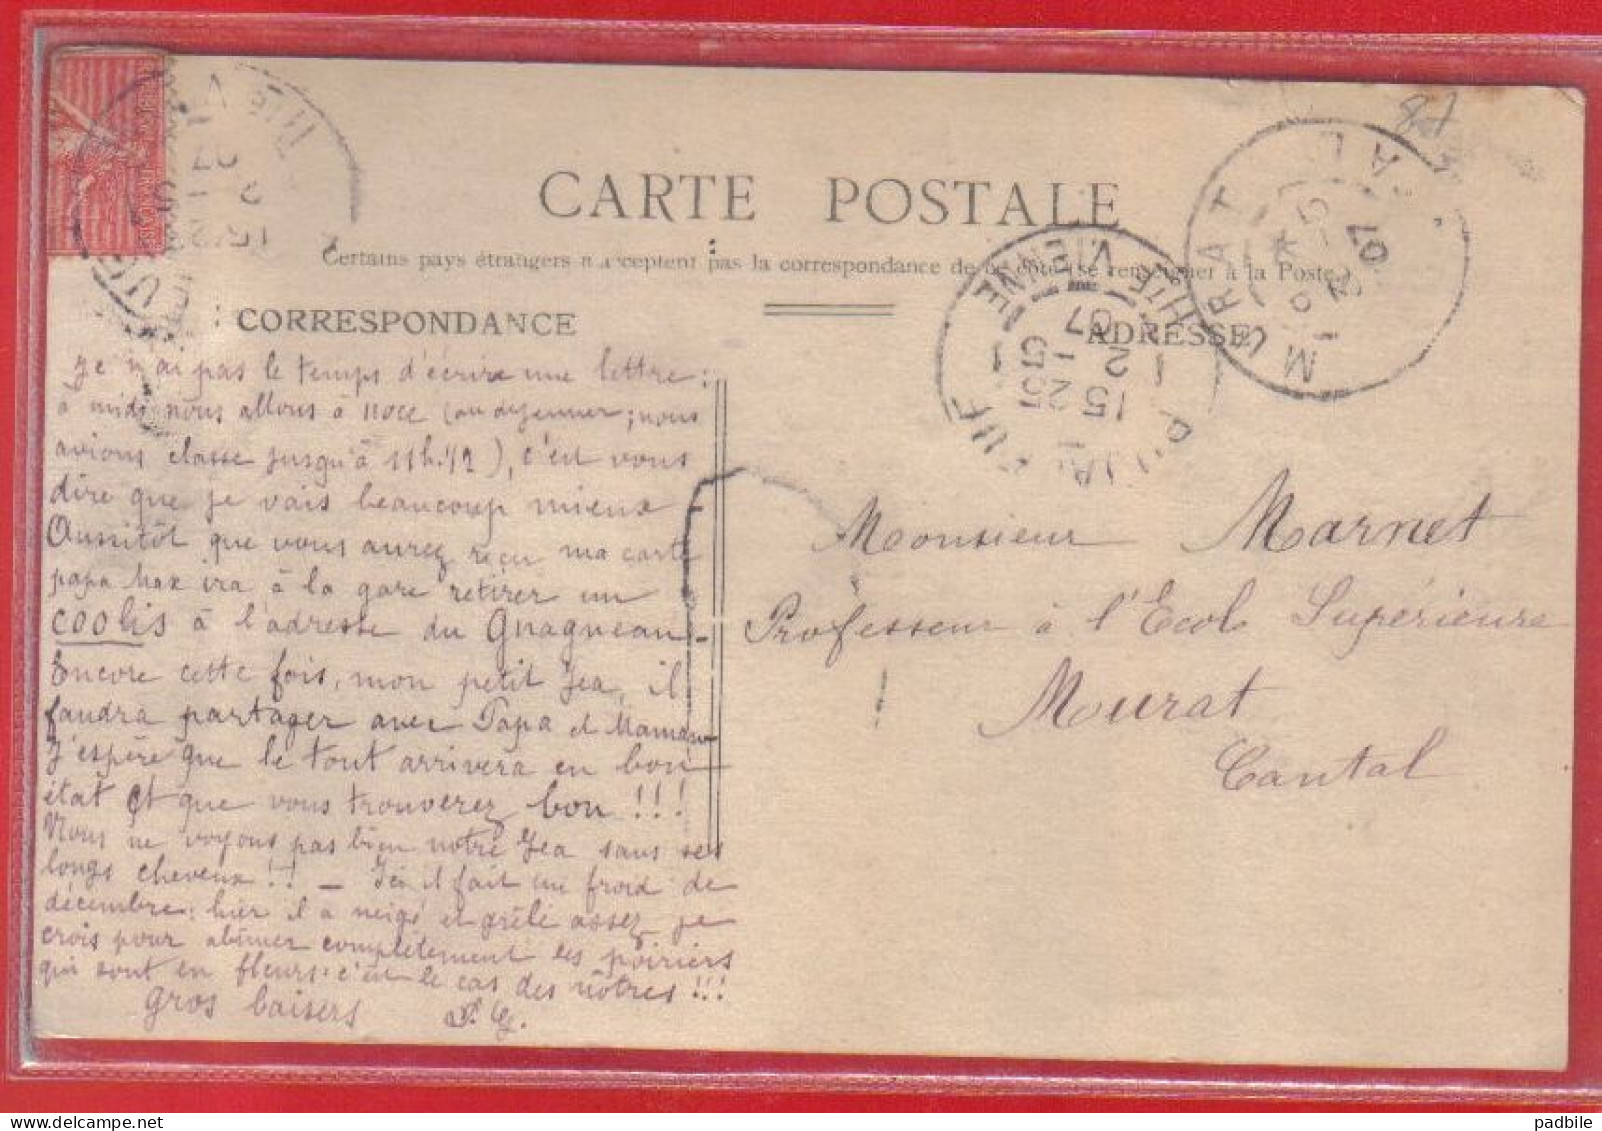 CARTE POSTALE
Certains pays étrangers n'acceptent pas la correspondance de ce côté (se renseigner à la Poste.)
CORRESPONDANCE
ADRESSE
Je n'ai pas le temps d'écrire une lettre :
à midi nous allons à noce (au déjeuner ; nous
avions classe jusqu'à 11h.1/2), c'est vous
dire que je vais beaucoup mieux -
Aussitôt que vous aurez reçu ma carte
papa Max ira à la gare retirer un
coolis à l'adresse du Gnagneau -
Encore cette fois, mon petit Jea, il
faudra partager avec Papa et Maman
J'espère que le tout arrivera en bon
état et que vous trouverez bon !!!
Nous ne voyons pas bien notre Jea sans ses
longs cheveux !! - Ici il fait un froid de
décembre ; hier il a neigé et grêlé assez, je
crois pour abîmer complètement les poiriers
qui sont en fleurs : c'est le cas des nôtres !!!
gros baisers
Monsieur Marnet
Professeur à l'Ecole Supérieure
Murat
Cantal
MURAT
15 25
2 - 5
07
HTE VIENNE
07
padbile
delcampe.net